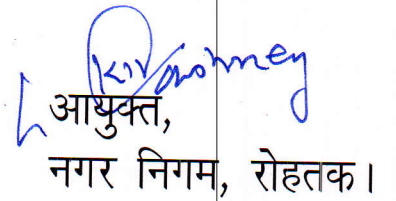 आयुक्त,
नगर निगम, रोहतक।